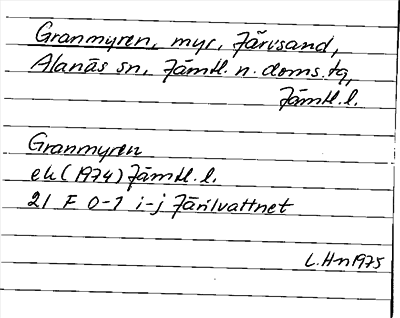 Granmyren, myr, Järvsand,
Alanäs sn, Jämtl. n. doms. tg,
Jämtl. l.
Granmyren
ek (1974) Jämtl. l.
21 F 0-1 i-j Järilvattnet
L. Hn 1975